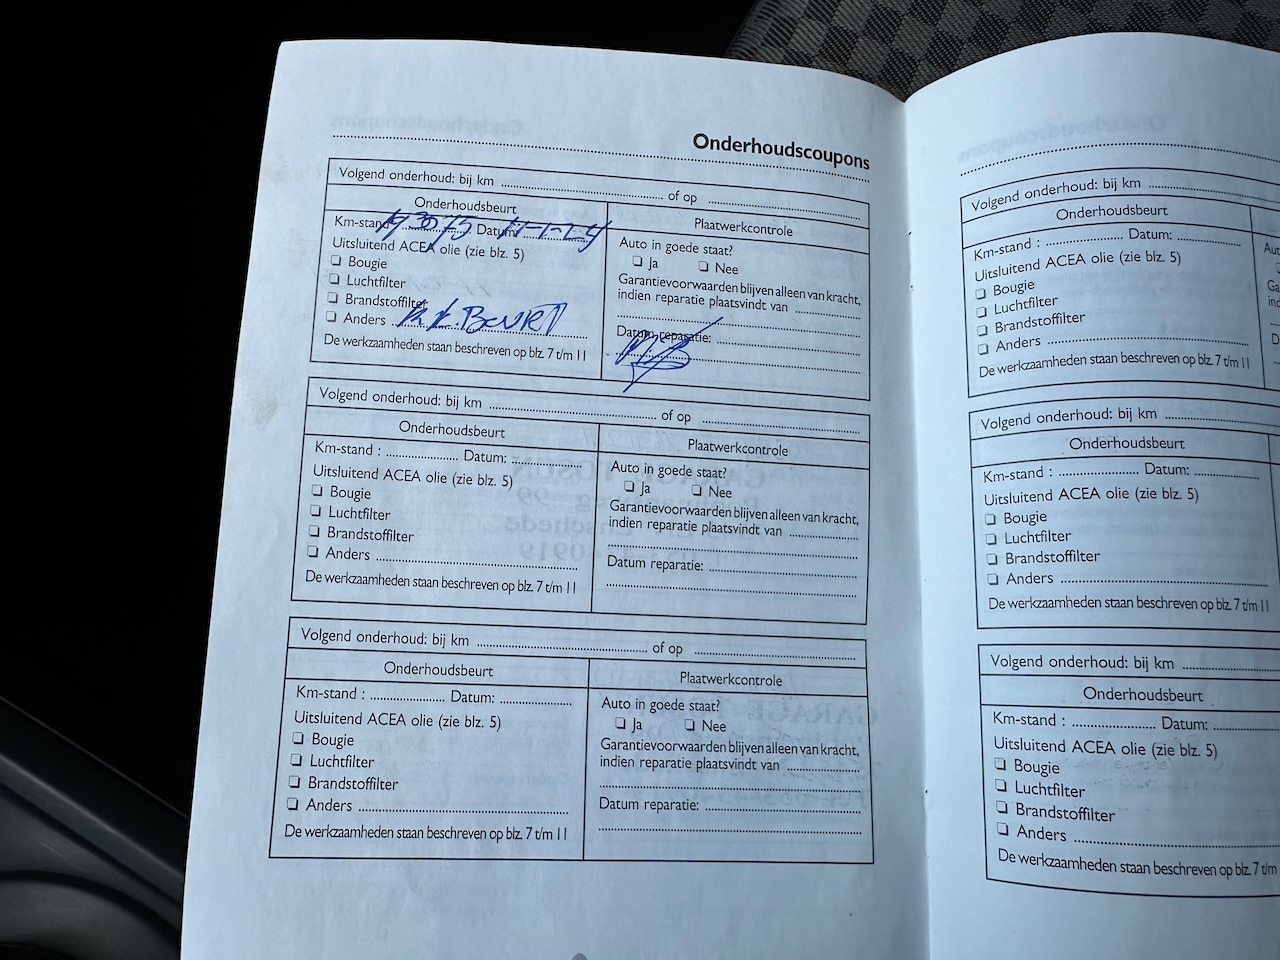 Onderhoudscoupons
Volgend onderhoud: bij km of op
Onderhoudsbeurt
Km-stand Datum: 11-1-24
Uitsluitend ACEA olie (zie blz. 5)
❏ Bougie
❏ Luchtfilter
❏ Brandstoffilter
❏ Anders BEURT
De werkzaamheden staan beschreven op blz. 7 t/m 11
Plaatwerkcontrole
Auto in goede staat?
❏ Ja ❏ Nee
Garantievoorwaarden blijven alleen van kracht,
indien reparatie plaatsvindt van
Datum reparatie:
Volgend onderhoud: bij km of op
Onderhoudsbeurt
Km-stand : Datum:
Uitsluitend ACEA olie (zie blz. 5)
❏ Bougie
❏ Luchtfilter
❏ Brandstoffilter
❏ Anders
De werkzaamheden staan beschreven op blz. 7 t/m 11
Plaatwerkcontrole
Auto in goede staat?
❏ Ja ❏ Nee
Garantievoorwaarden blijven alleen van kracht,
indien reparatie plaatsvindt van
Datum reparatie:
Volgend onderhoud: bij km of op
Onderhoudsbeurt
Km-stand : Datum:
Uitsluitend ACEA olie (zie blz. 5)
❏ Bougie
❏ Luchtfilter
❏ Brandstoffilter
❏ Anders
De werkzaamheden staan beschreven op blz. 7 t/m 11
Plaatwerkcontrole
Auto in goede staat?
❏ Ja ❏ Nee
Garantievoorwaarden blijven alleen van kracht,
indien reparatie plaatsvindt van
Datum reparatie:
Volgend onderhoud: bij km
Onderhoudsbeurt
Km-stand : Datum:
Uitsluitend ACEA olie (zie blz. 5)
❏ Bougie
❏ Luchtfilter
❏ Brandstoffilter
❏ Anders
De werkzaamheden staan beschreven op blz. 7 t/m 11
Volgend onderhoud: bij km
Onderhoudsbeurt
Km-stand : Datum:
Uitsluitend ACEA olie (zie blz. 5)
❏ Bougie
❏ Luchtfilter
❏ Brandstoffilter
❏ Anders
De werkzaamheden staan beschreven op blz. 7 t/m 11
Volgend onderhoud: bij km
Onderhoudsbeurt
Km-stand : Datum:
Uitsluitend ACEA olie (zie blz. 5)
❏ Bougie
❏ Luchtfilter
❏ Brandstoffilter
❏ Anders
De werkzaamheden staan beschreven op blz. 7 t/m